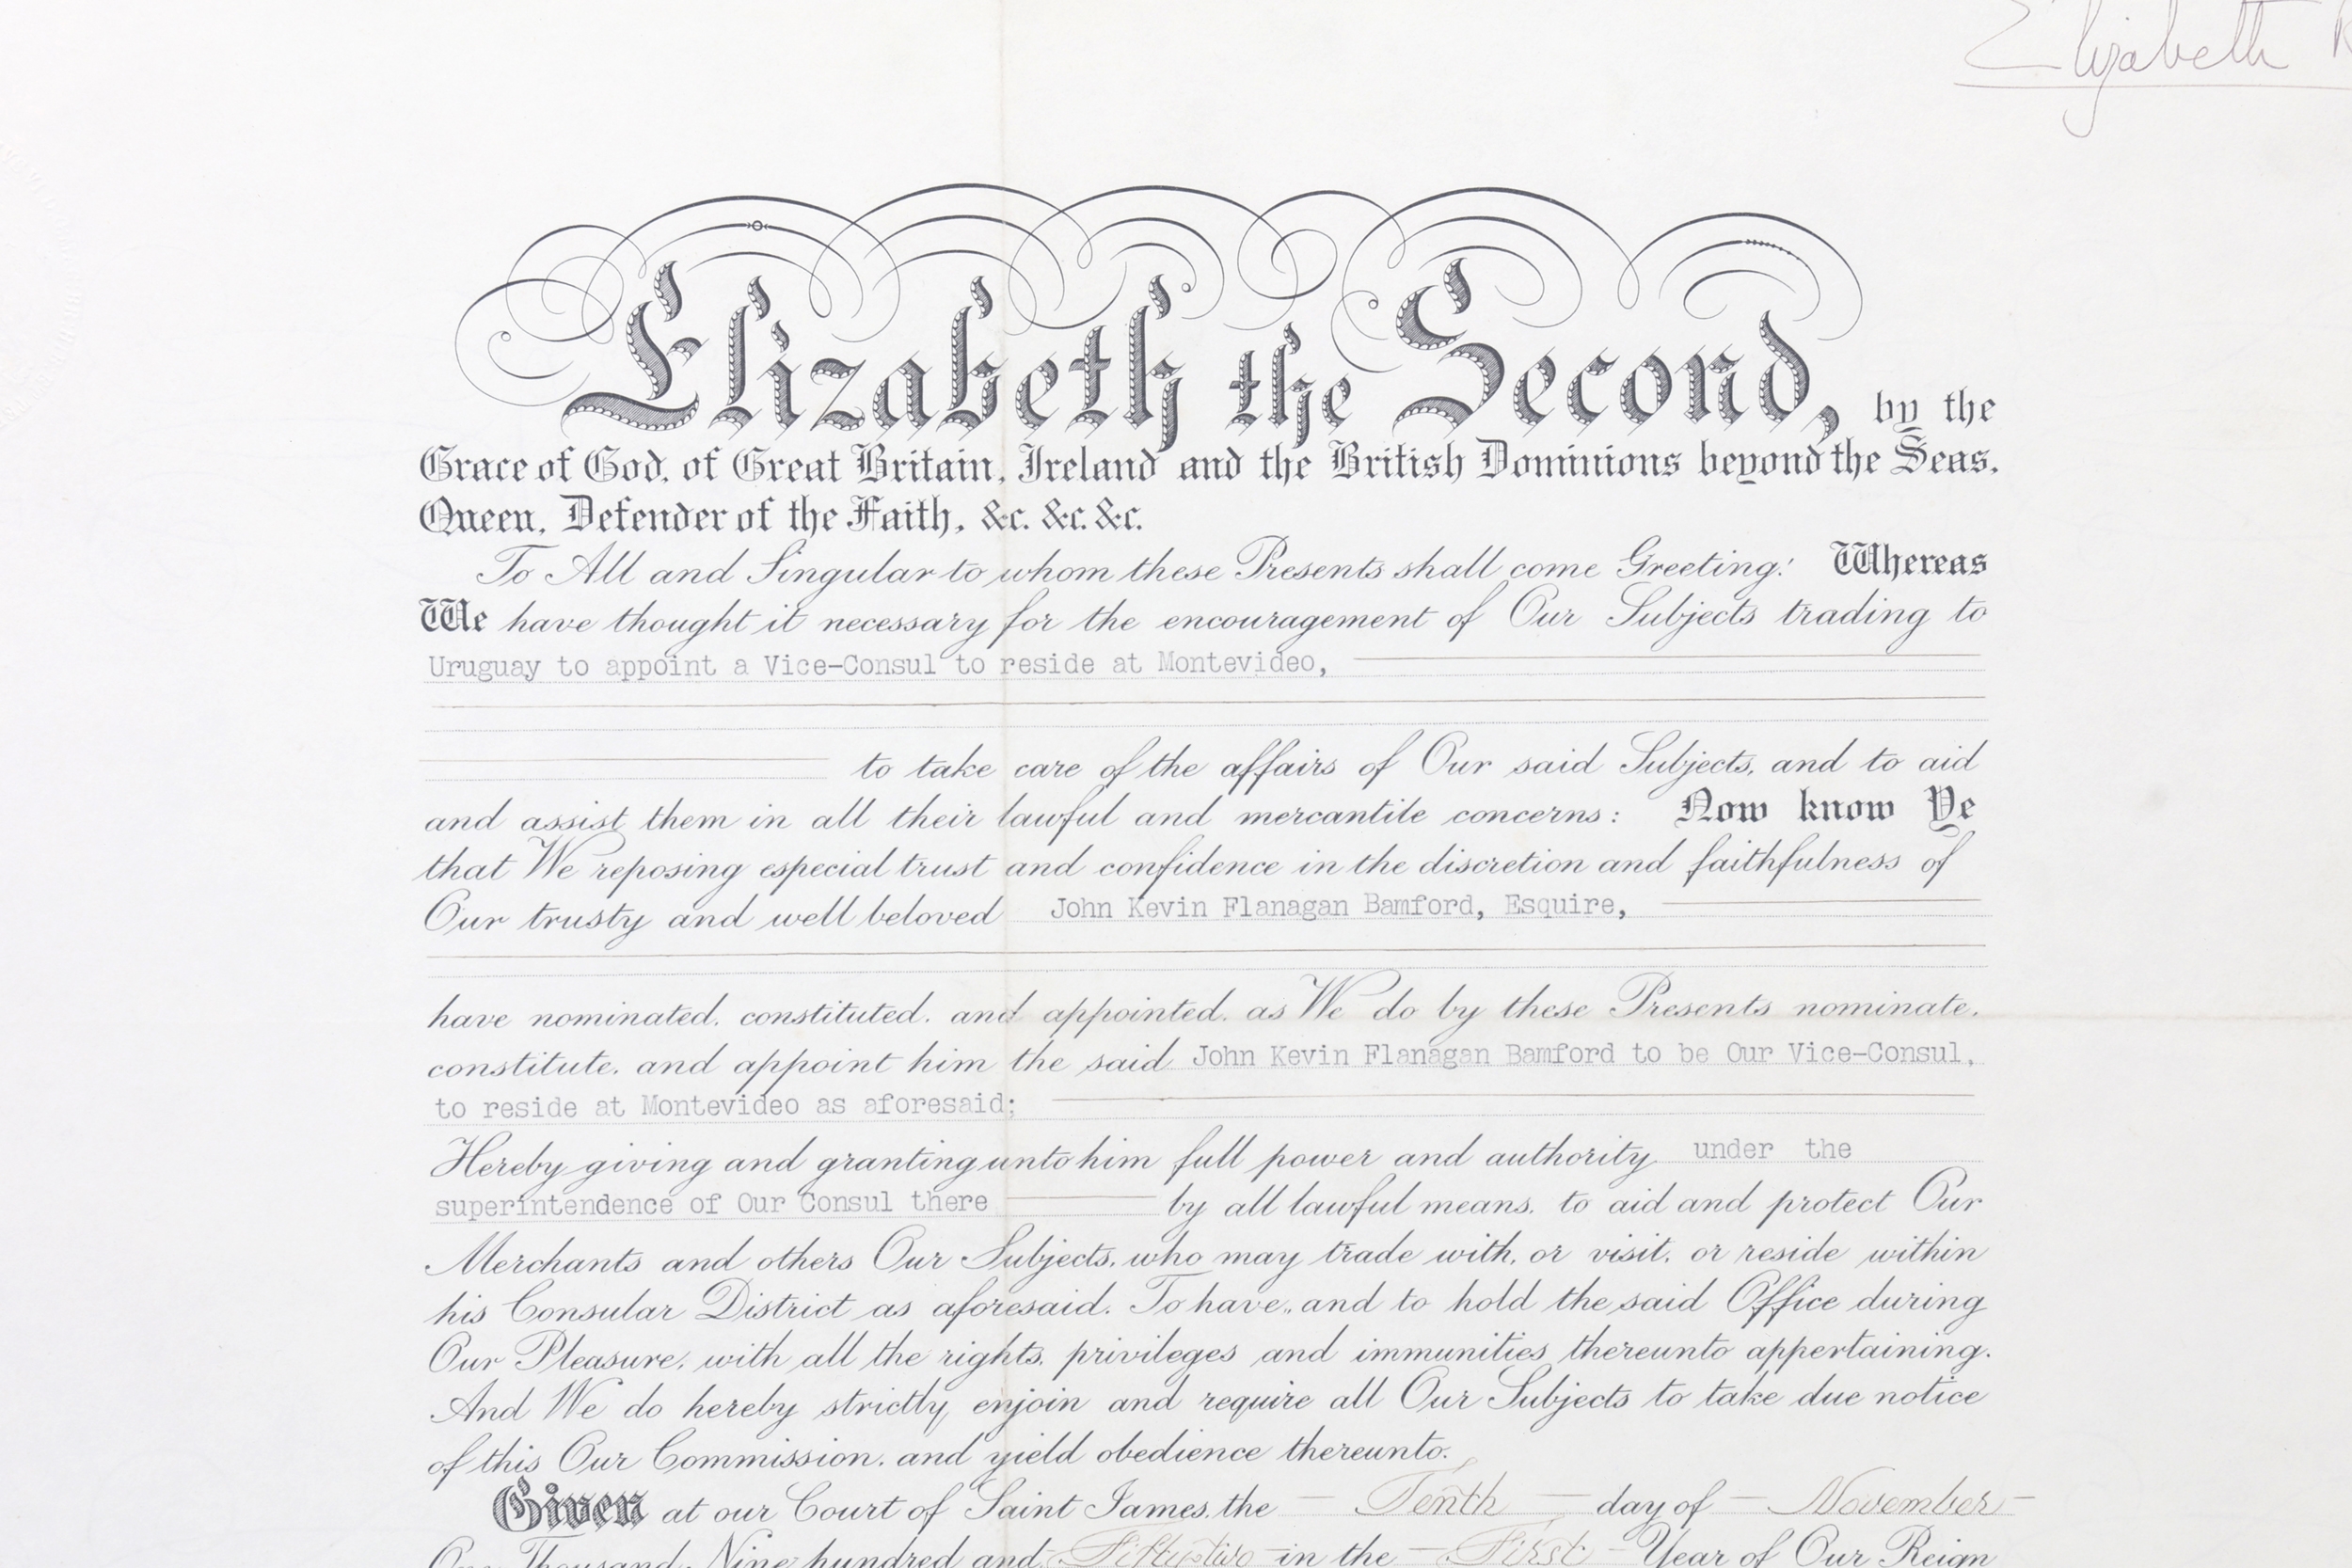 Elizabeth R
Elizabeth the Second, by the
Grace of God, of Great Britain, Ireland and the British Dominions beyond the Seas,
Queen, Defender of the Faith, &c. &c. &c.
To All and Singular to whom these Presents shall come Greeting: Whereas
We have thought it necessary for the encouragement of Our Subjects trading to
Uruguay to appoint a Vice-Consul to reside at Montevideo,
to take care of the affairs of Our said Subjects, and to aid
and assist them in all their lawful and mercantile concerns: Now know Ye
that We reposing especial trust and confidence in the discretion and faithfulness of
Our trusty and well beloved John Kevin Flanagan Bamford, Esquire,
have nominated, constituted, and appointed, as We do by these Presents nominate,
constitute, and appoint him the said John Kevin Flanagan Bamford to be Our Vice-Consul,
to reside at Montevideo as aforesaid;
Hereby giving and granting unto him full power and authority under the
superintendence of Our Consul there by all lawful means, to aid and protect Our
Merchants and others Our Subjects, who may trade with, or visit, or reside within
his Consular District as aforesaid. To have, and to hold the said Office during
Our Pleasure, with all the rights, privileges and immunities thereunto appertaining.
And We do hereby strictly enjoin and require all Our Subjects to take due notice
of this Our Commission, and yield obedience thereunto.
Given at our Court of Saint James, the Tenth day of November
One Thousand Nine hundred and Fifty-two in the First Year of Our Reign